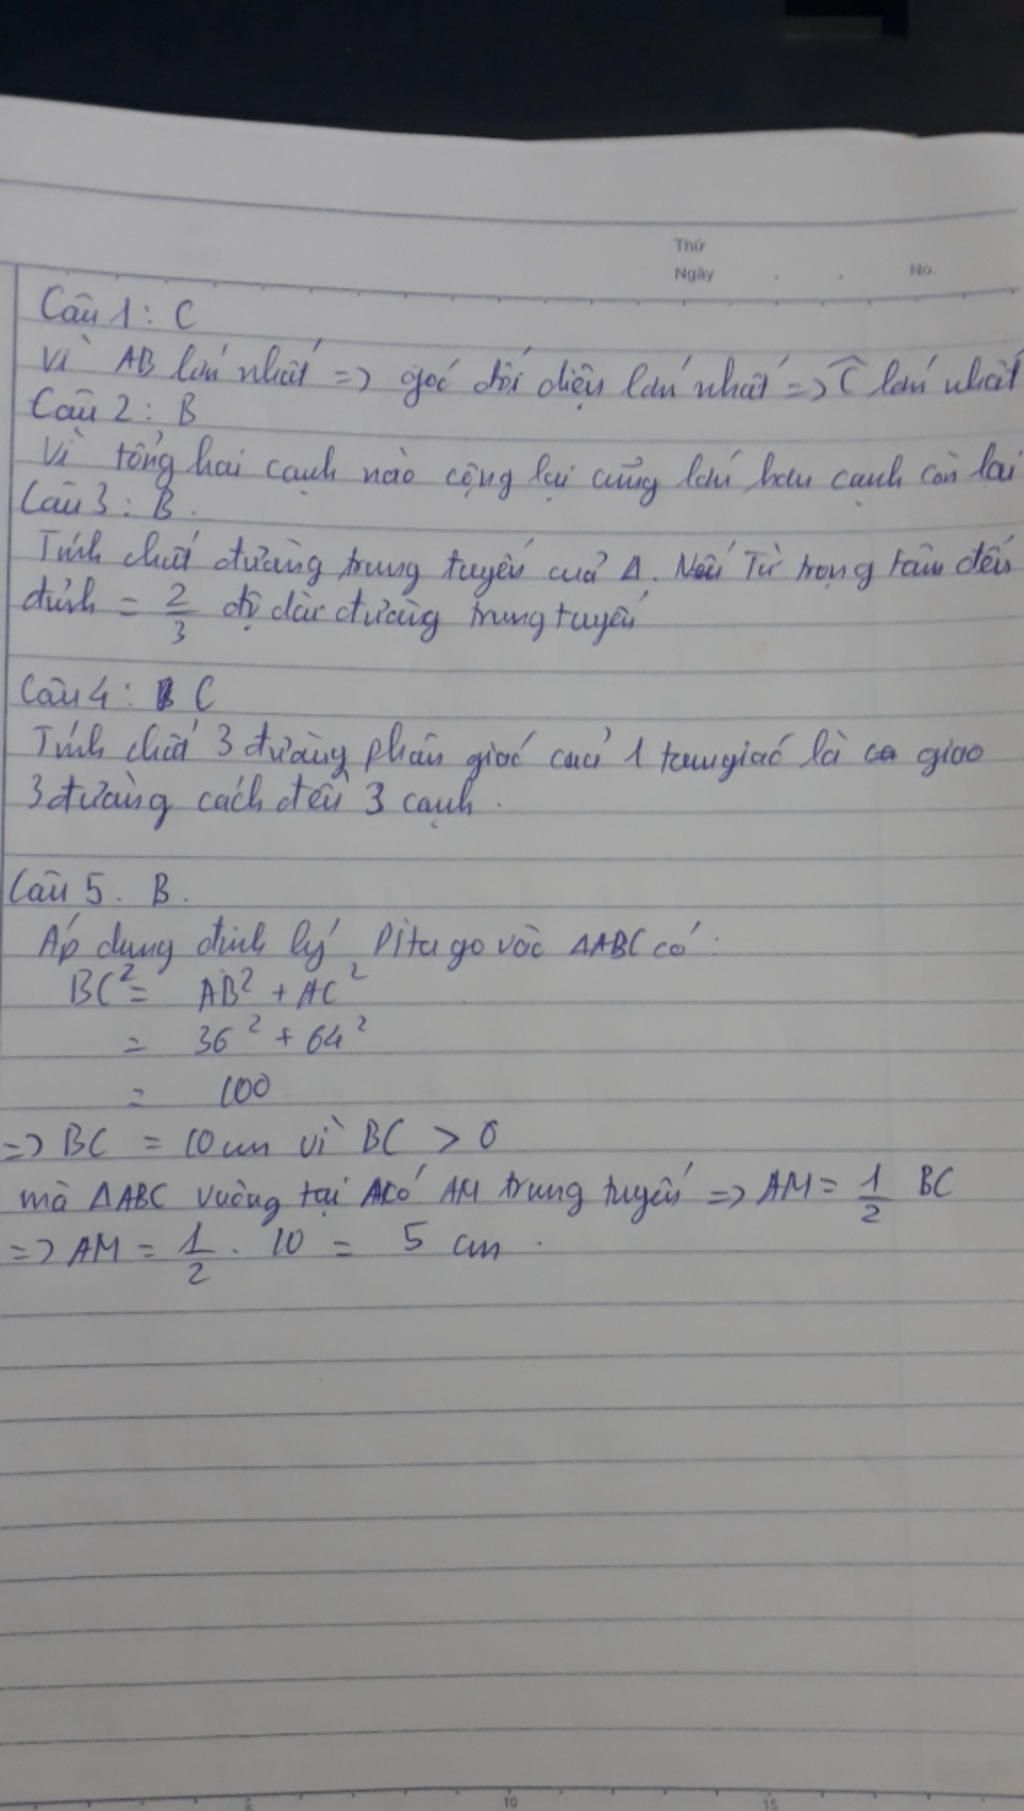 Thứ
Ngày . . No.
Câu 1: C
Vì AB lớn nhất => góc đối diện lớn nhất => Ĉ lớn nhất
Câu 2: B
Vì tổng hai cạnh nào cộng lại cũng lớn hơn cạnh còn lại
Câu 3: B.
Tính chất đường trung tuyến của Δ. Nếu Từ trọng tâm đến
đỉnh = 2/3 độ dài đường trung tuyến
Câu 4: C
Tính chất 3 đường phân giác của 1 tam giác là giao
3 đường cách đều 3 cạnh.
Câu 5. B.
Áp dụng định lý Pitago vào ΔABC có:
BC² = AB² + AC²
= 36² + 64²
= 100
=> BC = 10 cm vì BC > 0
mà ΔABC vuông tại A có AM trung tuyến => AM = 1/2 BC
=> AM = 1/2 . 10 = 5 cm.
5 10 15